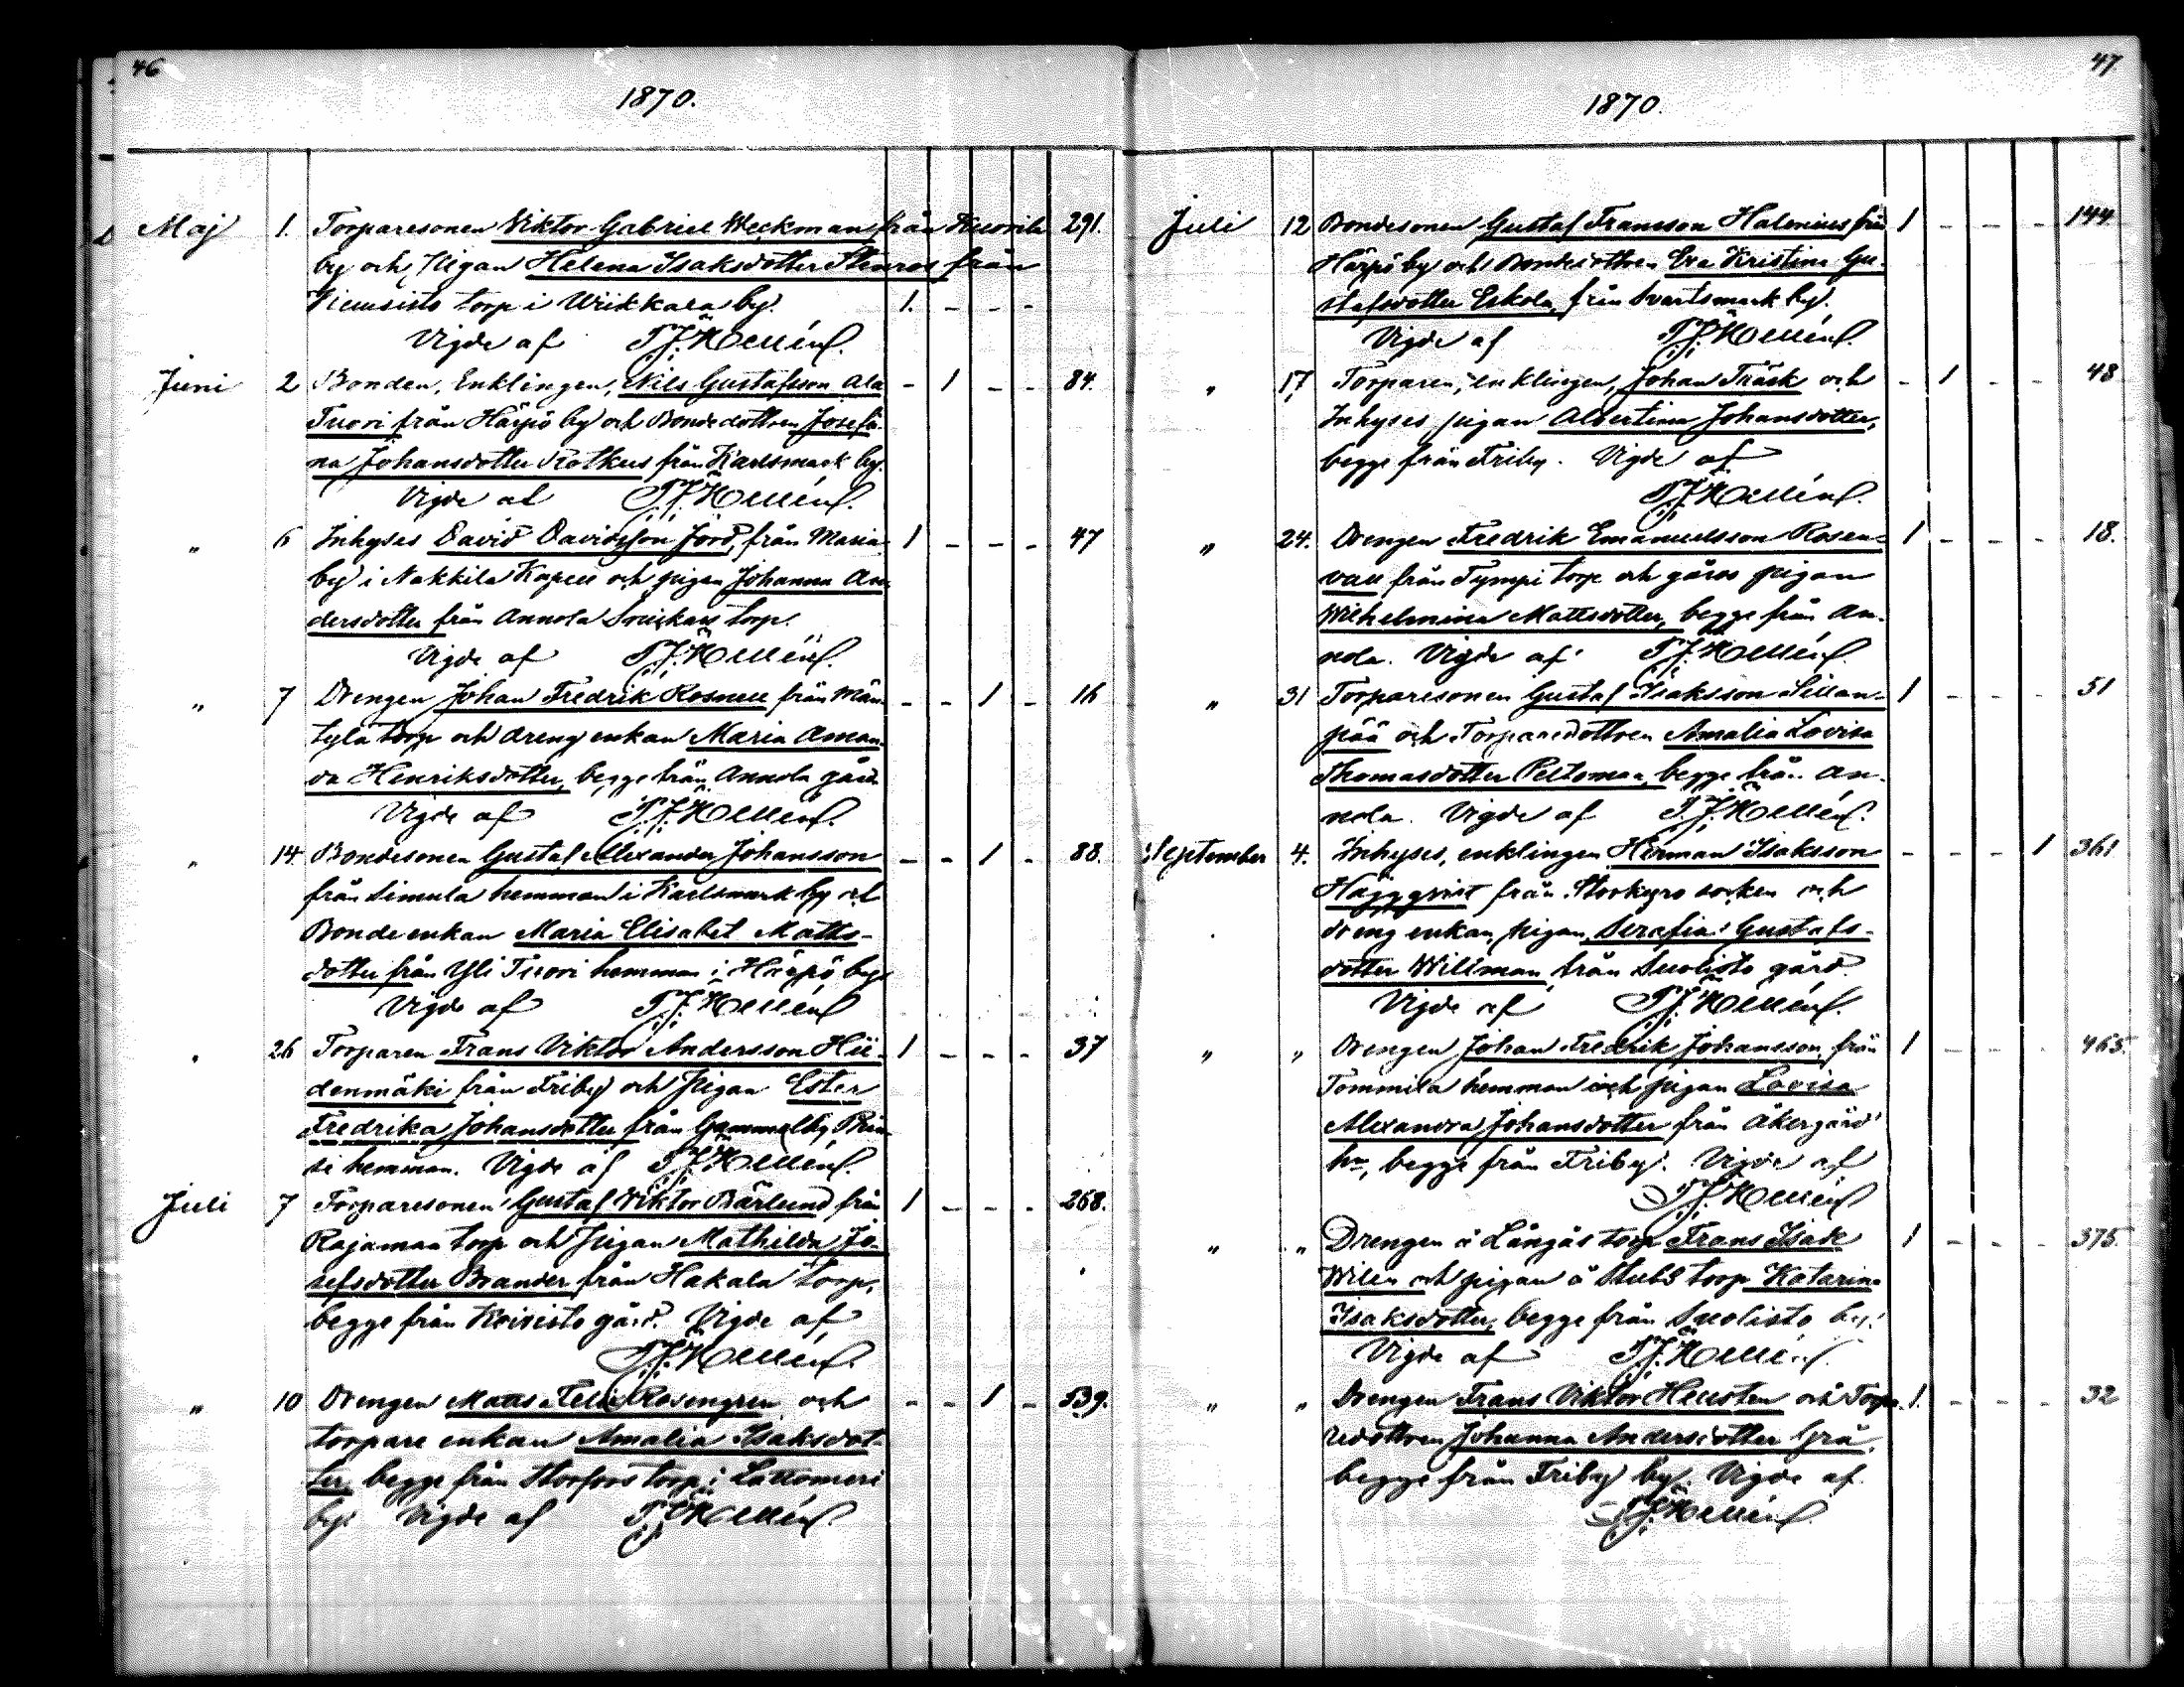 46
1870.
Maj 1. Torparesonen Viktor Gabriel Weckman från Kuorila 291.
by och Pigan Helena Isaksdotter Stenros från
torp i Wiikkala by. 1. - - -
Vigde af
Juni 2 Bonden, Enklingen, Nils Gustafsson Ala - 1 - - 84.
Tuori från Härpö by och Bondedottren Josefi-
na Johansdotter Rotkus från Karlsmark by.
Vigde af
" 6 Inhyses David Davidsson Jord, från Maria- 1 - - - 47
by i Nakkila Kapell och pigan Johanna An-
dersdotter från Annola torp.
Vigde af
" 7 Drengen Johan Fredrik Rosnell från Män- - - 1 - 16
tylä torp och drengenkan Maria Aman-
da Henriksdotter, begge från Annola gård.
Vigde af
" 14. Bondesonen Gustaf Alexander Johansson - - 1 - 88.
från Simula hemman i Karlsmark by och
Bondeenkan Maria Elisabet Matts-
dotter från Yli Tuori hemman i Härpö by.
Vigde af
" 26 Torparen Frans Viktor Andersson Hii- 1 - - - 37
denmäki från Friby och Pigan Ester
Fredrika Johansdotter från Gammelby
hemman. Vigde af
Juli 7 Torparesonen Gustaf Viktor Bärlund från 1 - - - 268.
Rajamaa torp och Pigan Mathilda Jo-
sefsdotter Brander från Hakala torp,
begge från Koivisto gård. Vigde af
" 10 Drengen Matts Felix Rosengren och - - 1 - 539.
torpare enkan Amalia Isaksdot-
ter, begge från Storfors torp i Lattomeri
by. Vigde af
47
1870.
Juli 12 Bondesonen Gustaf Fransson Halenius från 1 - - - 144.
Härpö by och Bondedottren Eva Kristina Gu-
stafsdotter Eskola, från Svartsmark by.
Vigde af
" 17 Torparen, enklingen, Johan Träsk och - 1 - - 48
Inhyses pigan Albertina Johansdotter,
begge från Friby. Vigde af
" 24. Drengen Fredrik Emanuelsson Rosen- 1 - - - 18.
vall från Tympi torp och gårds pigan
Wilhelmina Mattsdotter, begge från An-
nola. Vigde af
" 31 Torparesonen Gustaf Isaksson Sillan- 1 - - - 51
pää och Torparedottren Amalia Lovisa
Thomasdotter Peltomaa, begge från An-
nola. Vigde af
September 4. Inhyses, enklingen Herman Isaksson - - - 1 361
Häggqvist från Storkyro socken och
dreng enkan, pigan, Serafia Gustafs-
dotter Willman från Suolisto gård.
Vigde af
" " Drengen Johan Fredrik Johansson från 1 - - - 465.
Tommila hemman och pigan Lovisa
Alexandra Johansdotter från Åkergård
hn, begge från Friby. Vigde af
" " Drengen å Långås torp Frans Isak 1 - - - 375.
Wilen och pigan å Stubb torp Katarina
Isaksdotter, begge från Suolisto by.
Vigde af
" " Drengen Frans Viktor Hellsten och Torpa- 1. - - - 32
redottren Johanna Andersdotter Grå,
begge från Friby by. Vigde af